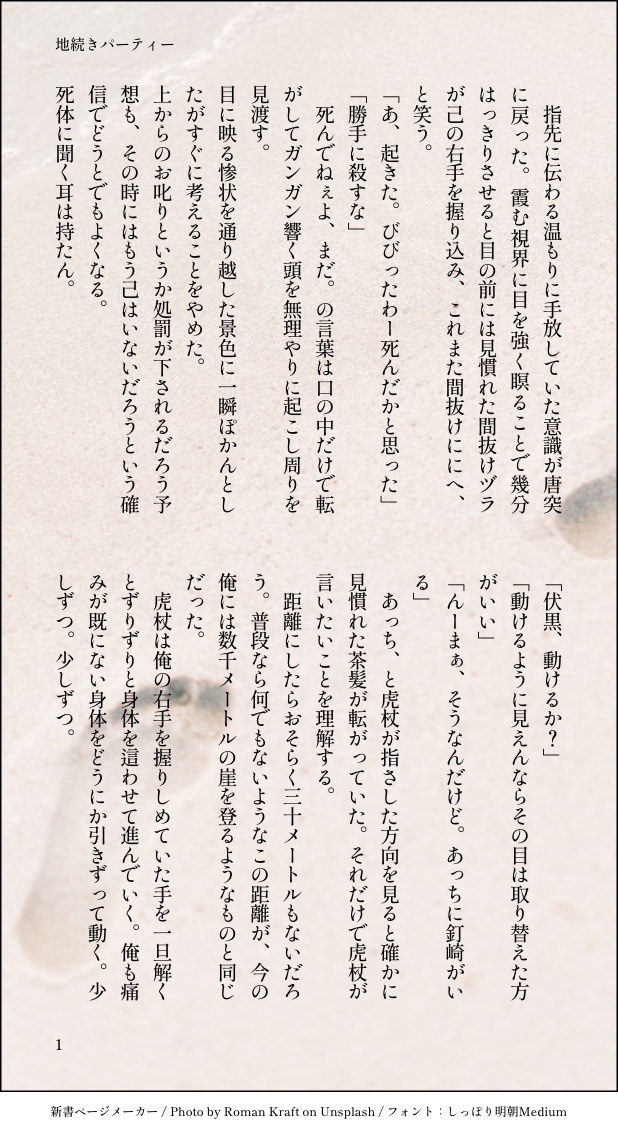 地続きパーティー
　指先に伝わる温もりに手放していた意識が唐突
に戻った。霞む視界に目を強く瞑ることで幾分
はっきりさせると目の前には見慣れた間抜けヅラ
が己の右手を握り込み、これまた間抜けににへ、
と笑う。
「あ、起きた。びびったわー死んだかと思った」
「勝手に殺すな」
　死んでねぇよ、まだ。の言葉は口の中だけで転
がしてガンガン響く頭を無理やりに起こし周りを
見渡す。
目に映る惨状を通り越した景色に一瞬ぽかんとし
たがすぐに考えることをやめた。
上からのお叱りというか処罰が下されるだろう予
想も、その時にはもう己はいないだろうという確
信でどうとでもよくなる。
死体に聞く耳は持たん。
「伏黒、動けるか？」
「動けるように見えんならその目は取り替えた方
がいい」
「んーまぁ、そうなんだけど。あっちに釘崎がい
る」
　あっち、と虎杖が指さした方向を見ると確かに
見慣れた茶髪が転がっていた。それだけで虎杖が
言いたいことを理解する。
　距離にしたらおそらく三十メートルもないだろ
う。普段なら何でもないようなこの距離が、今の
俺には数千メートルの崖を登るようなものと同じ
だった。
　虎杖は俺の右手を握りしめていた手を一旦解く
とずりずりと身体を這わせて進んでいく。俺も痛
みが既にない身体をどうにか引きずって動く。少
しずつ。少しずつ。
1
新書ページメーカー / Photo by Roman Kraft on Unsplash / フォント：しっぽり明朝Medium